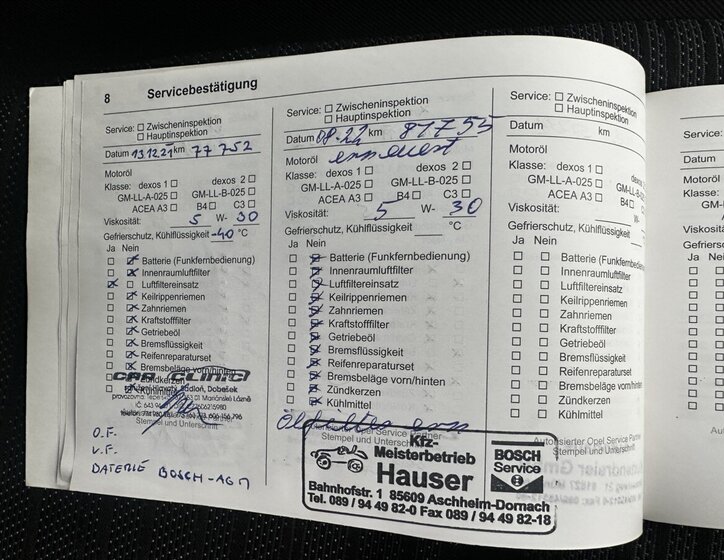 8 Servicebestätigung
Service: ☐ Zwischeninspektion
☐ Hauptinspektion
Datum 13.12.21 km 77 752
Motoröl
Klasse: dexos 1 ☐ dexos 2 ☐
GM-LL-A-025 ☐ GM-LL-B-025 ☐
ACEA A3 ☐ B4 ☐ C3 ☐
Viskosität: 5 W- 30
Gefrierschutz, Kühlflüssigkeit -40 °C
Ja Nein
☐ ☒ Batterie (Funkfernbedienung)
☐ ☒ Innenraumluftfilter
☒ ☐ Luftfiltereinsatz
☐ ☒ Keilrippenriemen
☐ ☒ Zahnriemen
☐ ☒ Kraftstofffilter
☐ ☒ Getriebeöl
☐ ☒ Bremsflüssigkeit
☐ ☒ Reifenreparaturset
☐ ☒ Bremsbeläge vorn/hinten
☐ ☒ Zündkerzen
CAR CLINIC
Stempel und Unterschrift
O.F.
V.F.
BATERIE BOSCH-AGM
Service: ☐ Zwischeninspektion
☐ Hauptinspektion
Datum 08.22 km 81755
Motoröl erneuert
Klasse: dexos 1 ☐ dexos 2 ☐
GM-LL-A-025 ☐ GM-LL-B-025 ☐
ACEA A3 ☐ B4 ☐ C3 ☐
Viskosität: 5 W- 30
Gefrierschutz, Kühlflüssigkeit °C
Ja Nein
☐ ☒ Batterie (Funkfernbedienung)
☐ ☒ Innenraumluftfilter
☐ ☒ Luftfiltereinsatz
☐ ☒ Keilrippenriemen
☐ ☒ Zahnriemen
☐ ☒ Kraftstofffilter
☐ ☒ Getriebeöl
☐ ☒ Bremsflüssigkeit
☐ ☒ Reifenreparaturset
☐ ☒ Bremsbeläge vorn/hinten
☐ ☒ Zündkerzen
☐ ☒ Kühlmittel
Autorisierter Opel Service Partner
Stempel und Unterschrift
Kfz-
Meisterbetrieb
Hauser
BOSCH
Service
Bahnhofstr. 1 85609 Aschheim-Dornach
Tel. 089 / 94 49 82-0 Fax 089 / 94 49 82-18
Service: ☐ Zwischeninspektion
☐ Hauptinspektion
Datum km
Motoröl
Klasse: dexos 1 ☐ dexos 2 ☐
GM-LL-A-025 ☐ GM-LL-B-025 ☐
ACEA A3 ☐ B4 ☐ C3 ☐
Viskosität: W-
Gefrierschutz, Kühlflüssigkeit °C
Ja Nein
☐ ☐ Batterie (Funkfernbedienung)
☐ ☐ Innenraumluftfilter
☐ ☐ Luftfiltereinsatz
☐ ☐ Keilrippenriemen
☐ ☐ Zahnriemen
☐ ☐ Kraftstofffilter
☐ ☐ Getriebeöl
☐ ☐ Bremsflüssigkeit
☐ ☐ Reifenreparaturset
☐ ☐ Bremsbeläge vorn/hinten
☐ ☐ Zündkerzen
☐ ☐ Kühlmittel
Autorisierter Opel Service Partner
Stempel und Unterschrift
Service:
Datum
Motoröl
Klasse:
GM-LL-
AC
Viskosität:
Gefrierschutz
Ja Nein